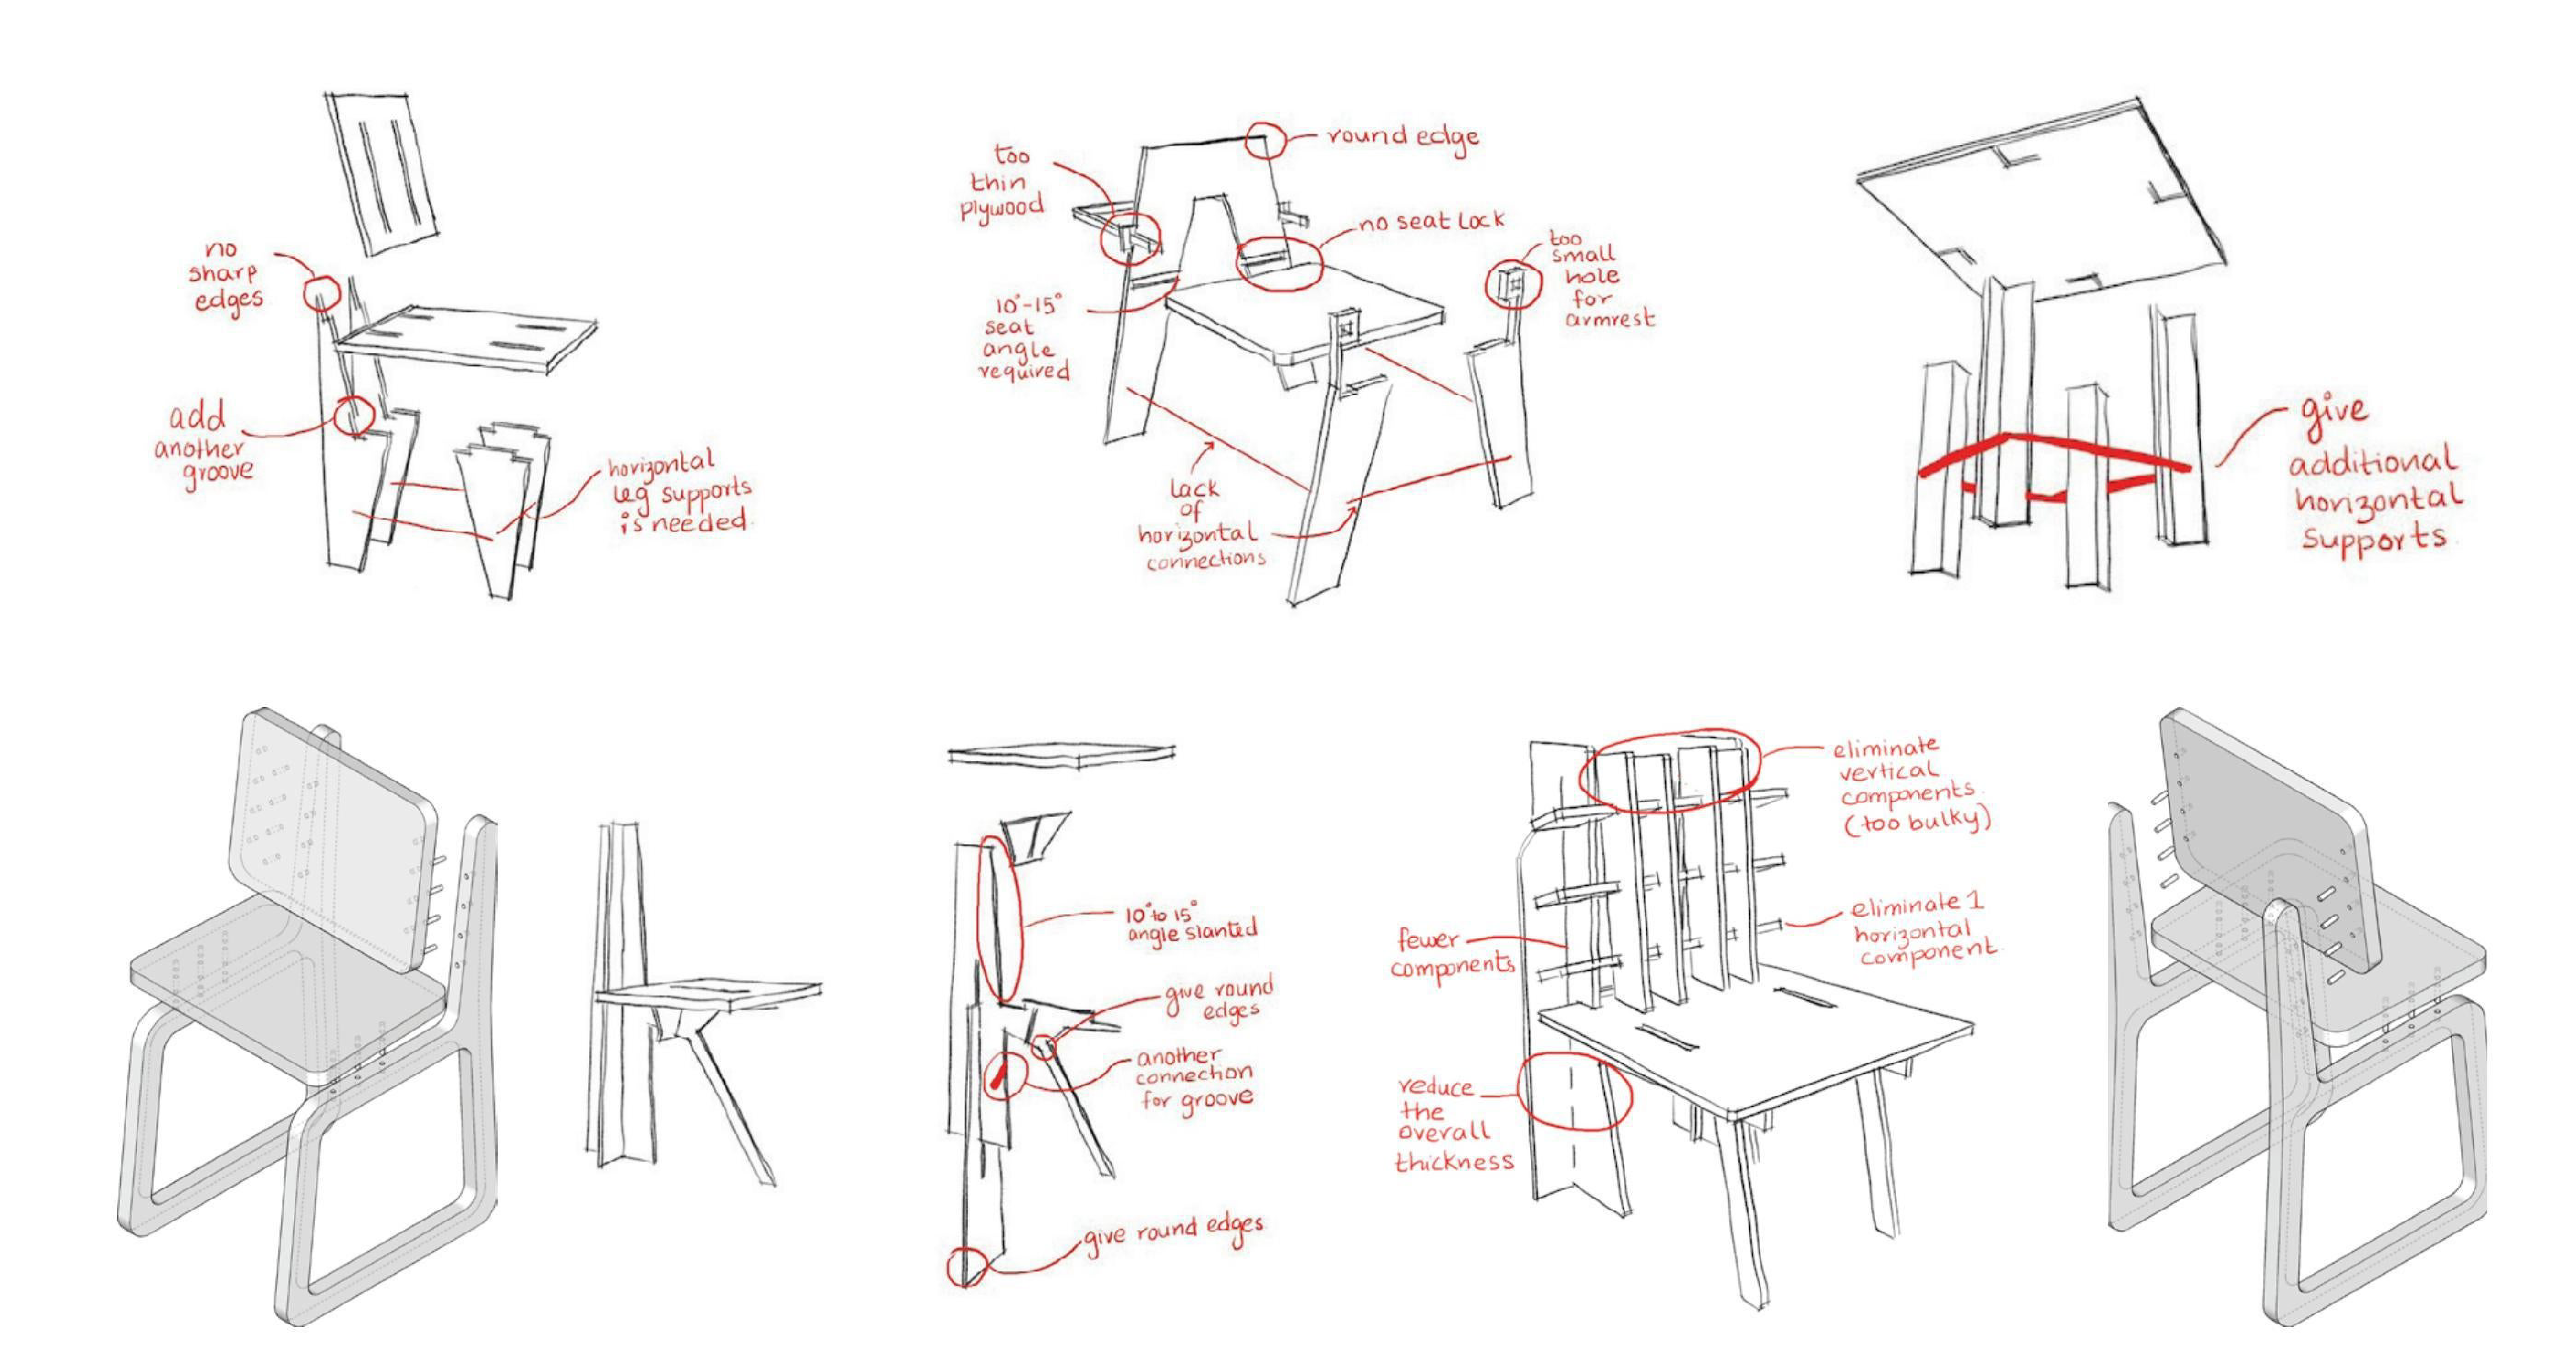 no
sharp
edges
add
another
groove
horizontal
leg supports
is needed.
too
thin
plywood
round edge
no seat lock
too
small
hole
for
armrest
10°-15°
seat
angle
required
lack
of
horizontal
connections
give
additional
horizontal
supports
10° to 15°
angle slanted
give round
edges
another
connection
for groove
give round edges
eliminate
vertical
components.
(too bulky)
eliminate 1
horizontal
component.
fewer
components
reduce
the
overall
thickness